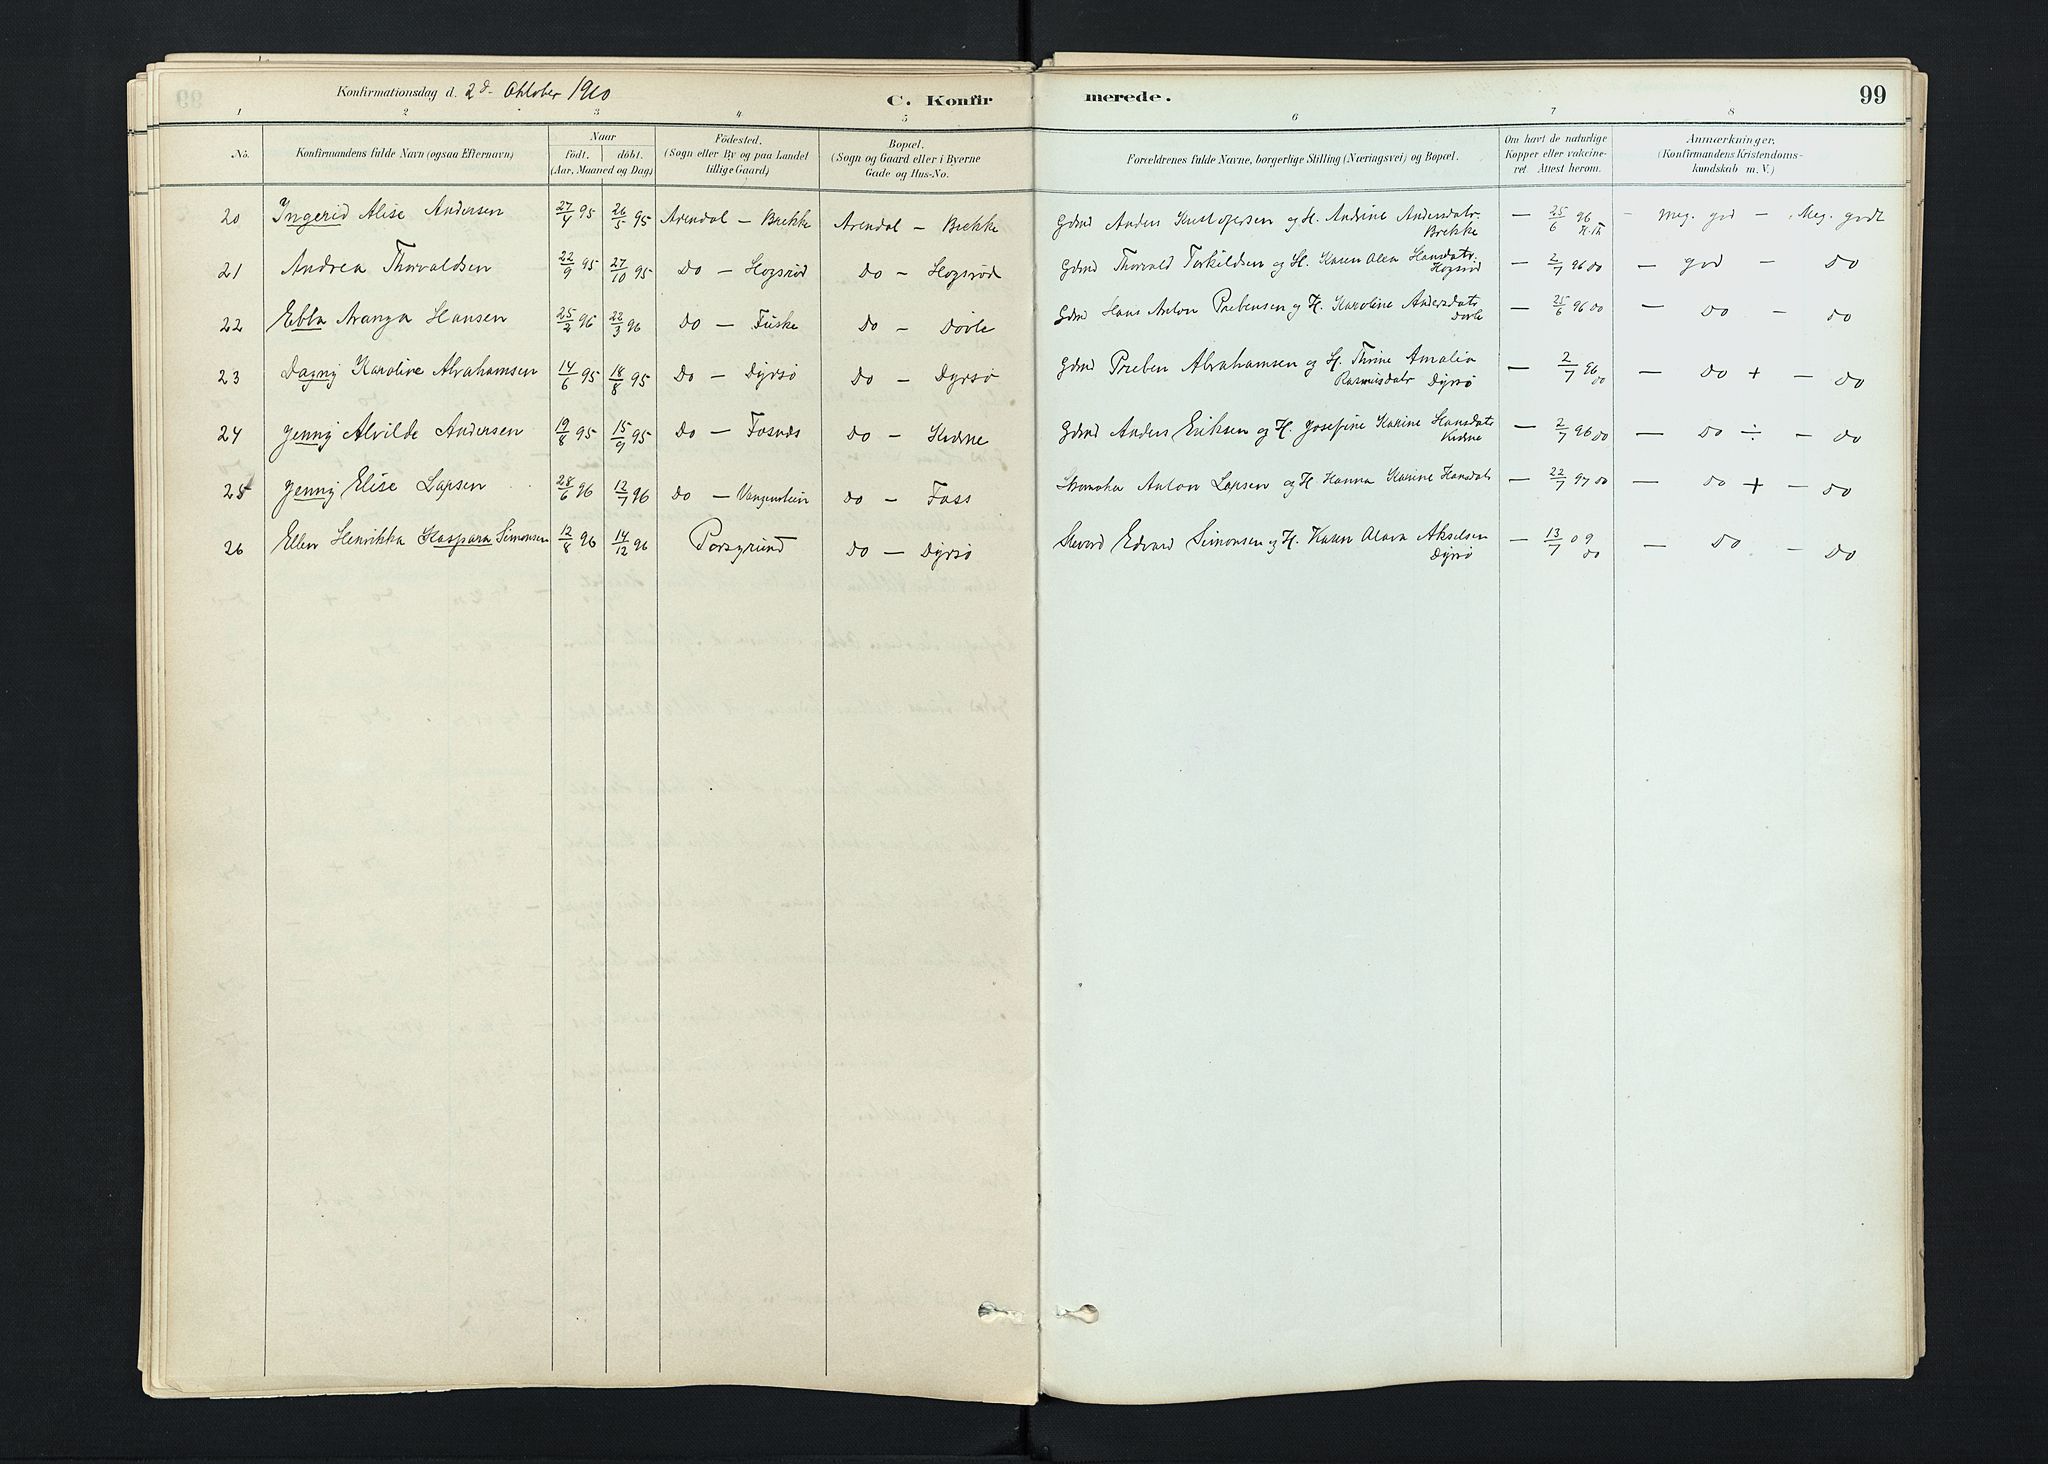 Konfirmationsdag d. 2d. Oktober 1910 C. Konfirmerede. 99
1 2 3 4 5 6 7 8
No. Konfirmandens fulde Navn (ogsaa Efternavn) Naar födt. döbt. (Aar, Maaned og Dag) Födested. (Sogn eller By og paa Landet tillige Gaard) Bopæl. (Sogn og Gaard eller i Byerne Gade og Hus-No. Forældrenes fulde Navne, borgerlige Stilling (Næringsvei) og Bopæl. Om havt de naturlige Kopper eller vakcineret. Attest herom. Anmærkninger. (Konfirmandens Kristendomskundskab m. V.)
20 Ingerid Alise Andersen 27/4 95 26/5 95 Arendal — Brekke Arendal — Brekke Gdmd Anders Kristofersen og H. Andrine Andersdatr. Brekke — 25/6 96 — Meg. god — Meg. godt
21 Andrea Thorvaldsen 22/9 95 27/10 95 Do — Hogsrød Do — Hogsrød Gdmd Thorvald Torkildsen og H. Karen Alea Hansdatr. Hogsrød — 2/7 96 do — god — Do
22 Ebba Aranga Hansen 25/2 96 22/3 96 Do — Fuske Do — Dovle Gdmd Hans Anton Prebensen og H. Karoline Andersdatr Dovle — 25/6 96 do — Do — Do
23 Dagny Karoline Abrahamsen 14/6 95 18/8 95 Do — Dyrsø Do — Dyrsø Gdmd Preben Abrahamsen og H. Thrine Amalia Rasmusdatr Dyrsø — 2/7 96 do — Do + — Do
24 Jenny Alvilde Andersen 19/8 95 15/9 95 Do — Fosnæs Do — Kverne Gdmd Anders Eriksen og H. Josefine Karine Hansdatr Kverne — 2/7 96 do — Do ÷ — Do
25 Jenny Elise Larsen 28/6 96 12/7 96 Do — Vangenstein Do — Foss Anton Larsen og H. Hanna Karine Hansdatr — 22/7 97 do — Do + — Do
26 Ellen Henrikka Kaspara Simonsen 12/8 96 14/12 96 Porsgrund Do — Dyrsø Stevard Edvard Simonsen og H. Karen Alava Akselsen Dyrsø — 13/7 09 do — Do — Do